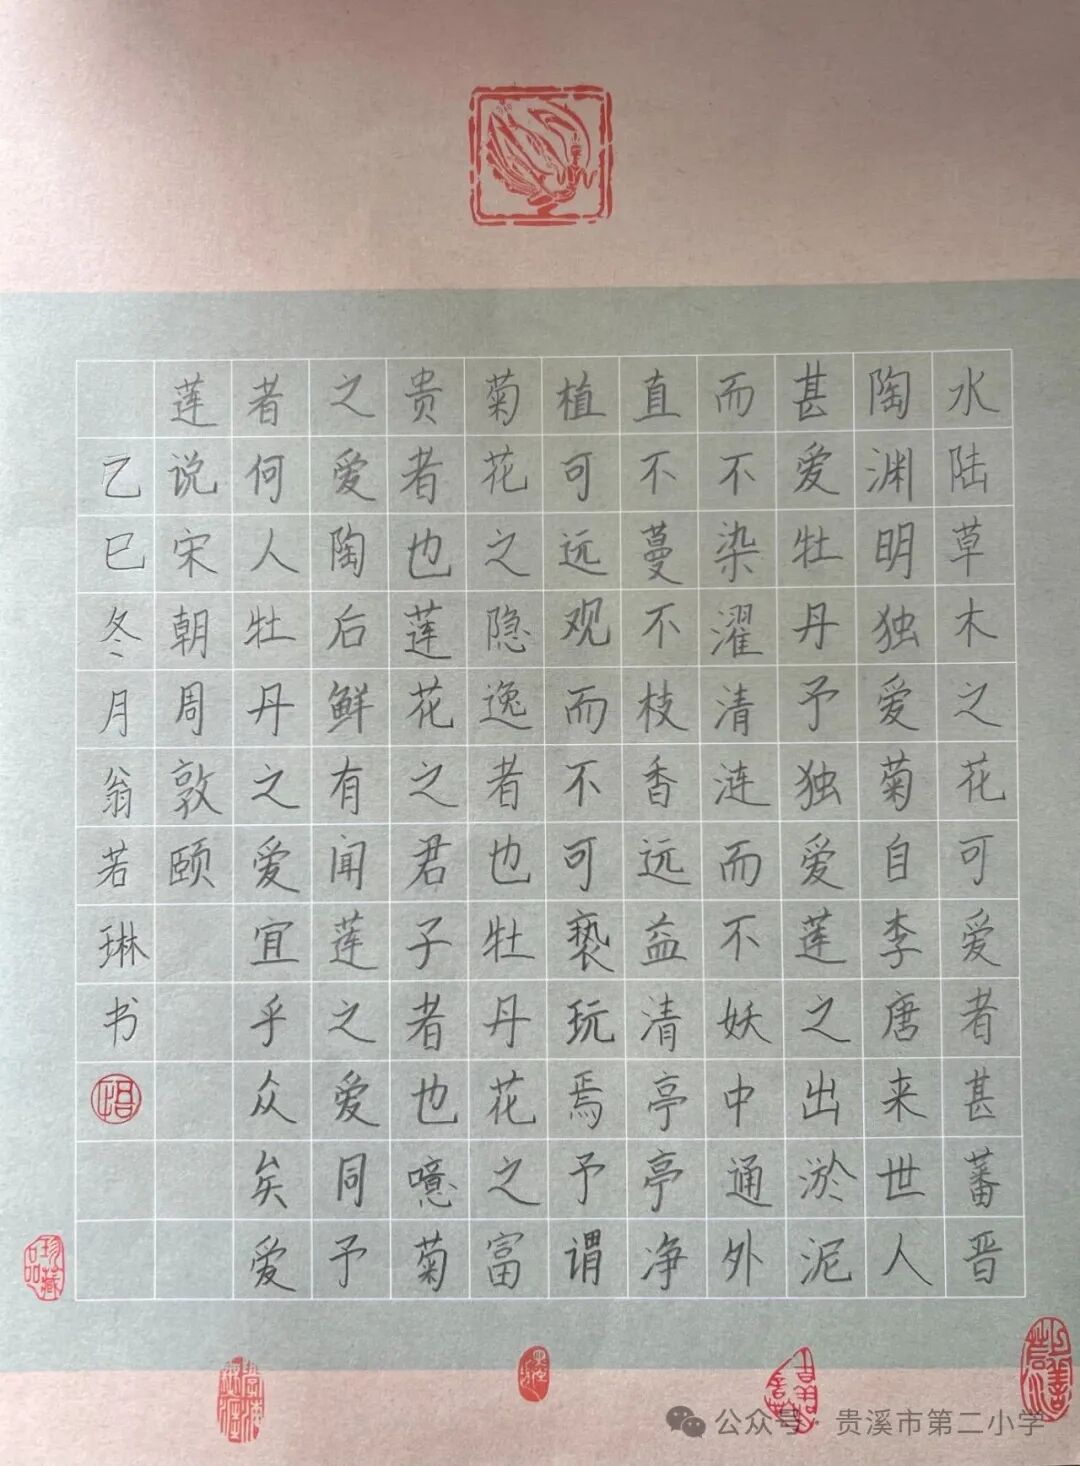 水陆草木之花可爱者甚蕃晋
陶渊明独爱菊自李唐来世人
甚爱牡丹予独爱莲之出淤泥
而不染濯清涟而不妖中通外
直不蔓不枝香远益清亭亭净
植可远观而不可亵玩焉予谓
菊花之隐逸者也牡丹花之富
贵者也莲花之君子者也噫菊
之爱陶后鲜有闻莲之爱同予
者何人牡丹之爱宜乎众矣爱
莲说宋朝周敦颐
乙巳冬月翁若琳书
珍藏品
公众号·贵溪市第二小学